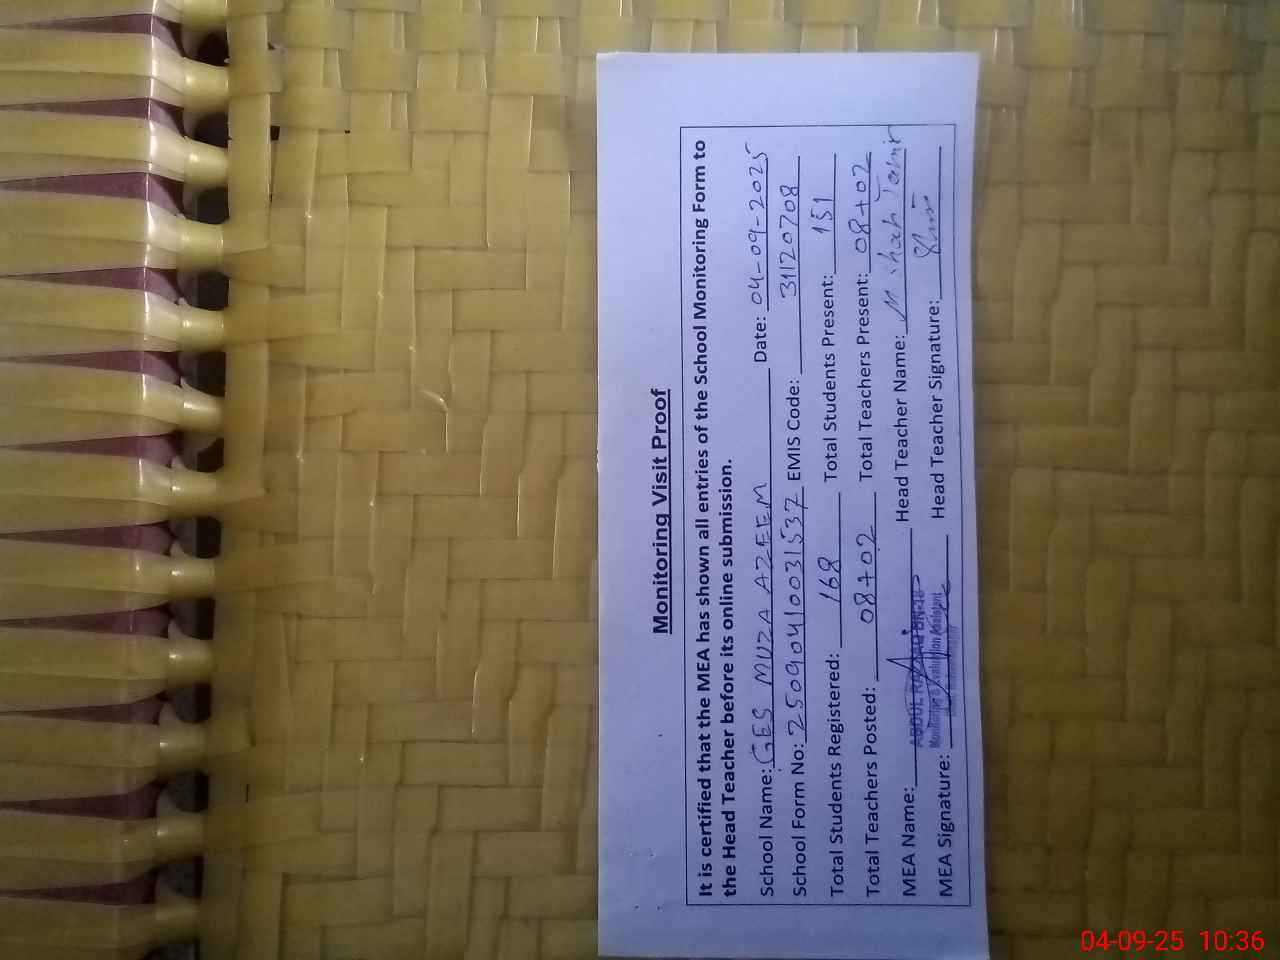 Monitoring Visit Proof
It is certified that the MEA has shown all entries of the School Monitoring Form to
the Head Teacher before its online submission.
School Name: GES MUZA AZEEM Date: 04-09-2025
School Form No: 25090410031537 EMIS Code: 31120708
Total Students Registered: 168 Total Students Present: 151
Total Teachers Posted: 08+02 Total Teachers Present: 08+02
MEA Name: ABDUL Head Teacher Name: M shah Tahir
Monitoring & Evaluation Assistant
MEA Signature: Head Teacher Signature:
04-09-25 10:36